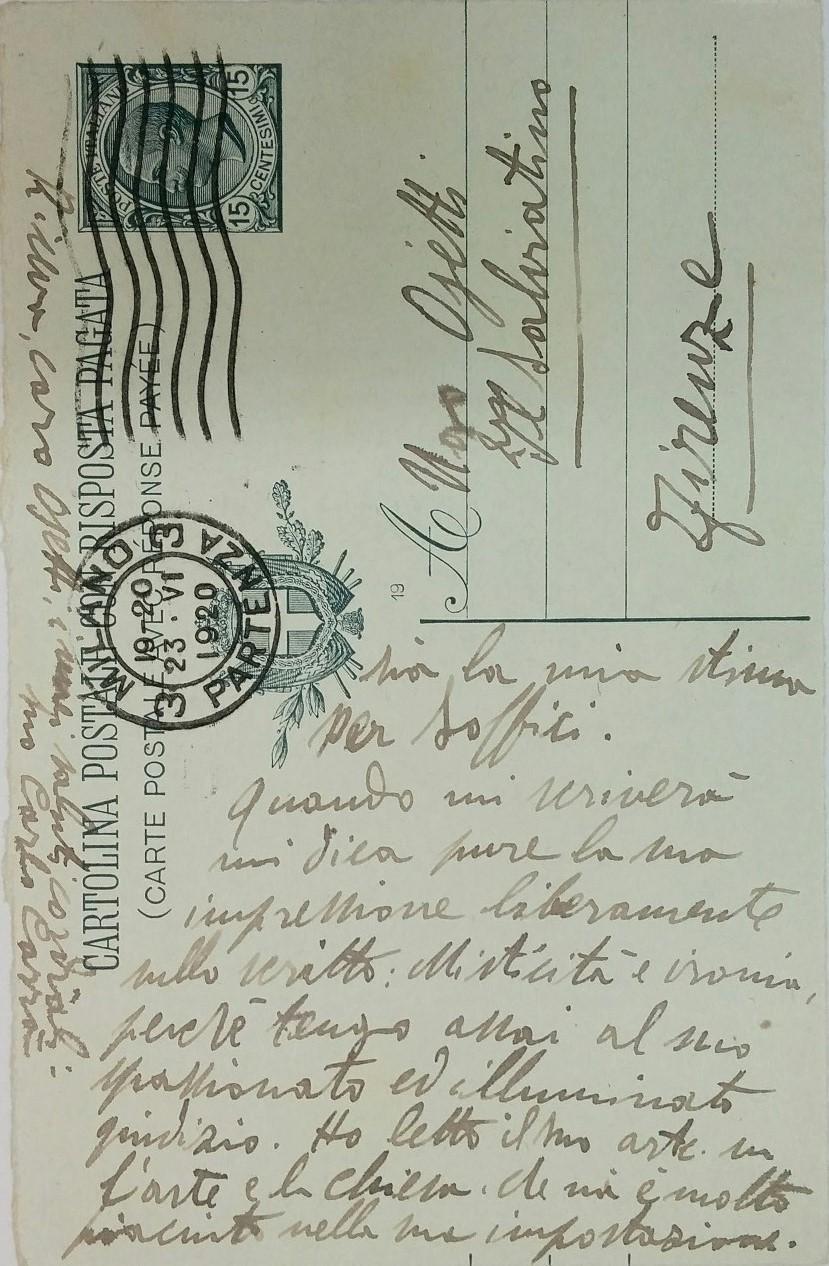 CARTOLINA POSTALE CON RISPOSTA PAGATA
(CARTE POSTALE AVEC RÉPONSE PAYÉE)
POSTE ITALIANE
15 CENTESIMI 15
MILANO PARTENZA
3 3
19-20
23 · VI
1920
19
A Ugo Ojetti
Salviatino
Firenze
sia la mia stima
per Soffici.
Quando mi scriverà
mi dica pure la sua
impressione liberamente
sullo scritto: Misticità e ironia,
perchè tengo assai al suo
spassionato ed illuminato
giudizio. Ho letto il suo art. su
l'arte e la chiesa. che mi è molto
piaciuto nella sua impostazione.
caro Ojetti, i miei saluti cordiali.
suo Carlo Carrà